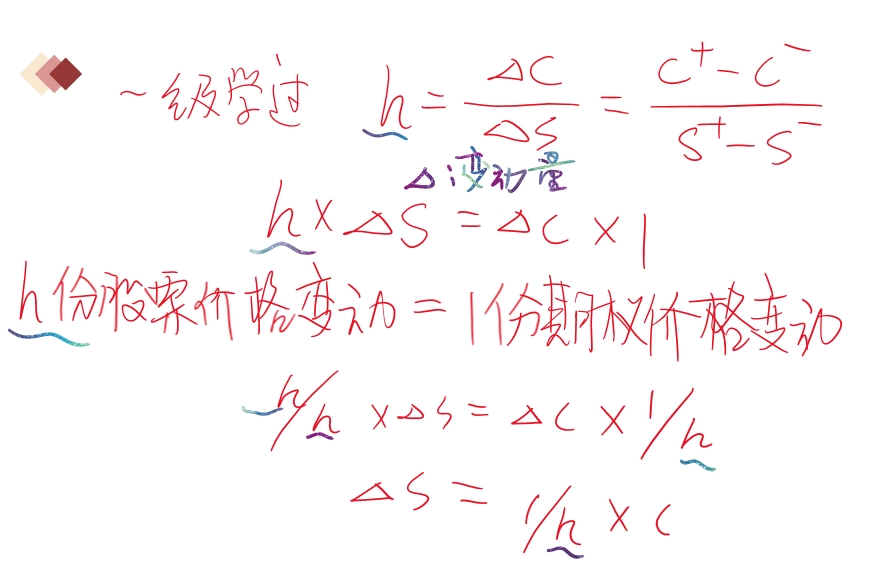 ~级学过 h = ΔC/ΔS = (C⁺ - C⁻)/(S⁺ - S⁻)
Δ 变动量
h × ΔS = ΔC × 1
h份股票价格变动 = 1份期权价格变动
h/h × ΔS = ΔC × 1/h
ΔS = 1/h × C